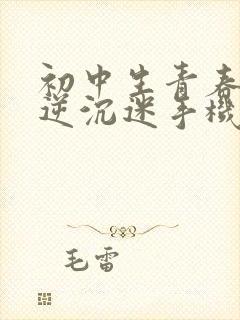 初中生青春
逆沉迷手機
毛雷